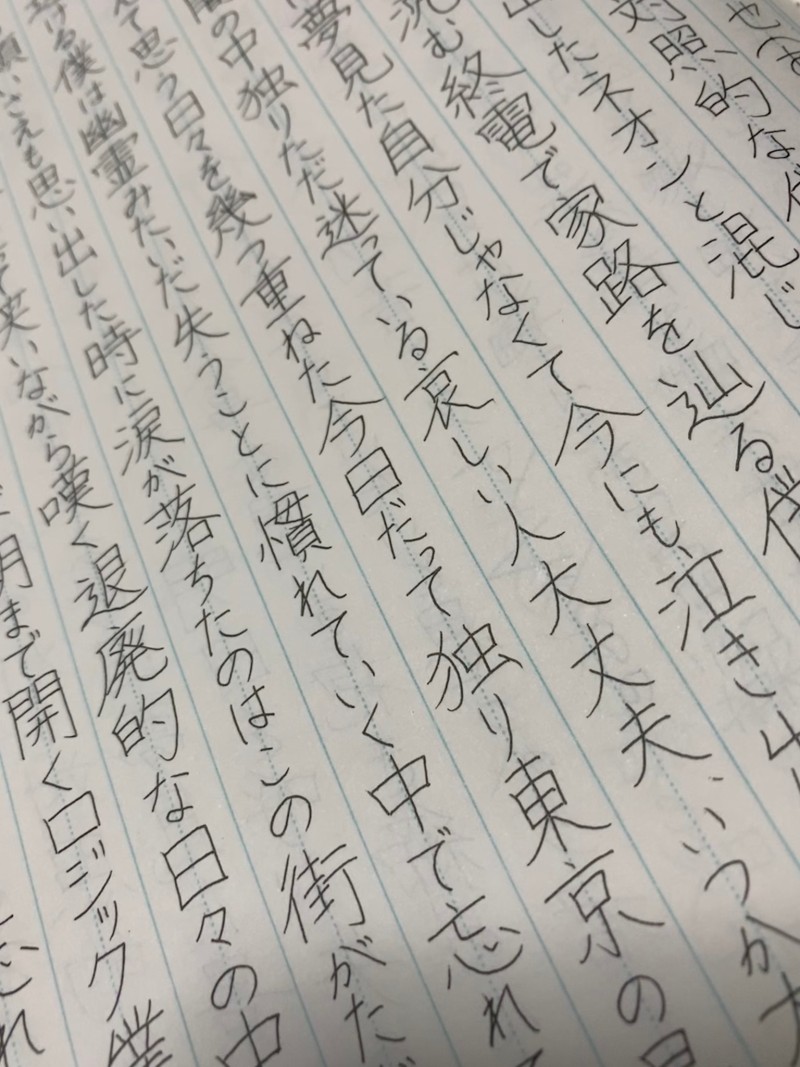 対照的な
したネオンと混じ
沈む終電で家路を辿る僕
夢見た自分じゃなくて今にも泣き
闇の中独りただ迷っている哀しい人大丈夫いつか
えて思う日々を幾つ重ねた今日だって独り東京の
ける僕は幽霊みたいだ失うことに慣れていく中で忘れ
願いさえも思い出した時に涙が落ちたのはこの街がただ
て笑いながら嘆く退廃的な日々の中
明まで開くロジック僕
忘れ